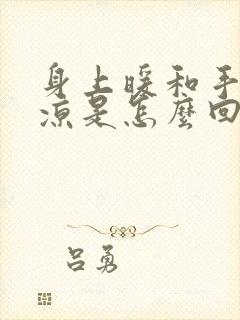 身上暖和手
凉是怎麼回
吕勇